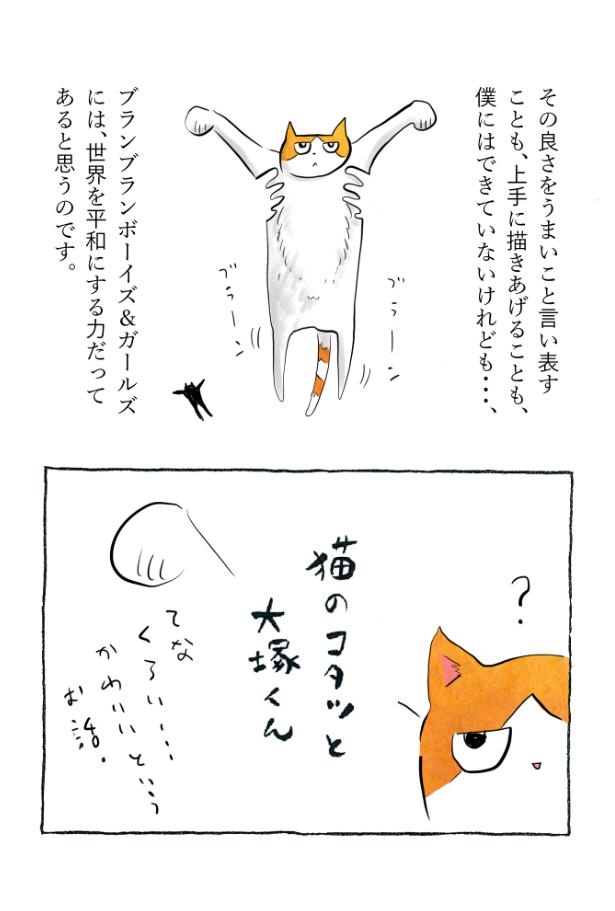 その良さをうまいこと言い表す
ことも、上手に描きあげることも、
僕にはできていないけれども・・・、
ぶらーン
ぶらーン
ブランブランボーイズ＆ガールズ
には、世界を平和にする力だって
あると思うのです。
?
猫のコタツと
大塚くん
てな
くらい・・・・
かわいいという
お話。